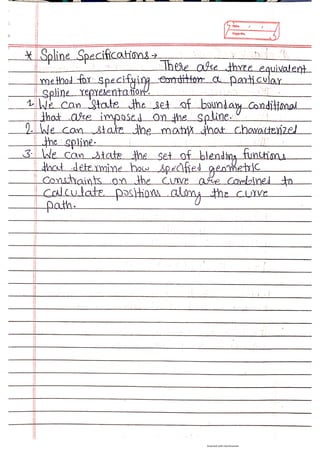 * Spline Specifications →
There are three equivalent
method for specifying condition a particular
spline representation.
1. We can state the set of boundary conditional
that are imposed on the spline.
2. We can state the matrix that characterizes
the spline.
3. We can state the set of blending functions
that determine how specified geometric
constraints on the curve are combined to
calculate positions along the curve
path.